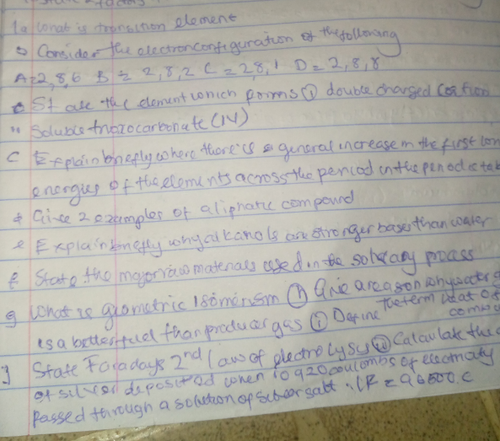 1a what is transition element
Consider the electron configuration of the following
A=2,8,6 B = 2,8,2 C = 28,1 D = 2,8,8
State the element which forms (i) double charged
Soluble trioxocarbonate (IV)
C Explain briefly where there is general increase in the first
energies of the elements across the period in the period
Give 2 examples of aliphatic compound
e Explain briefly why alkanols are stronger bases than water
f State the major raw materials used in the solvay process
g What is geometric isomerism (i) Give a reason why water
is a better fuel than producer gas (i) Define the term heat of
State Faradays 2nd law of electrolysis (ii) Calculate the
of silver deposited when 10920 coulombs of electricity
passed through a solution of silver salt. (F = 96500 C